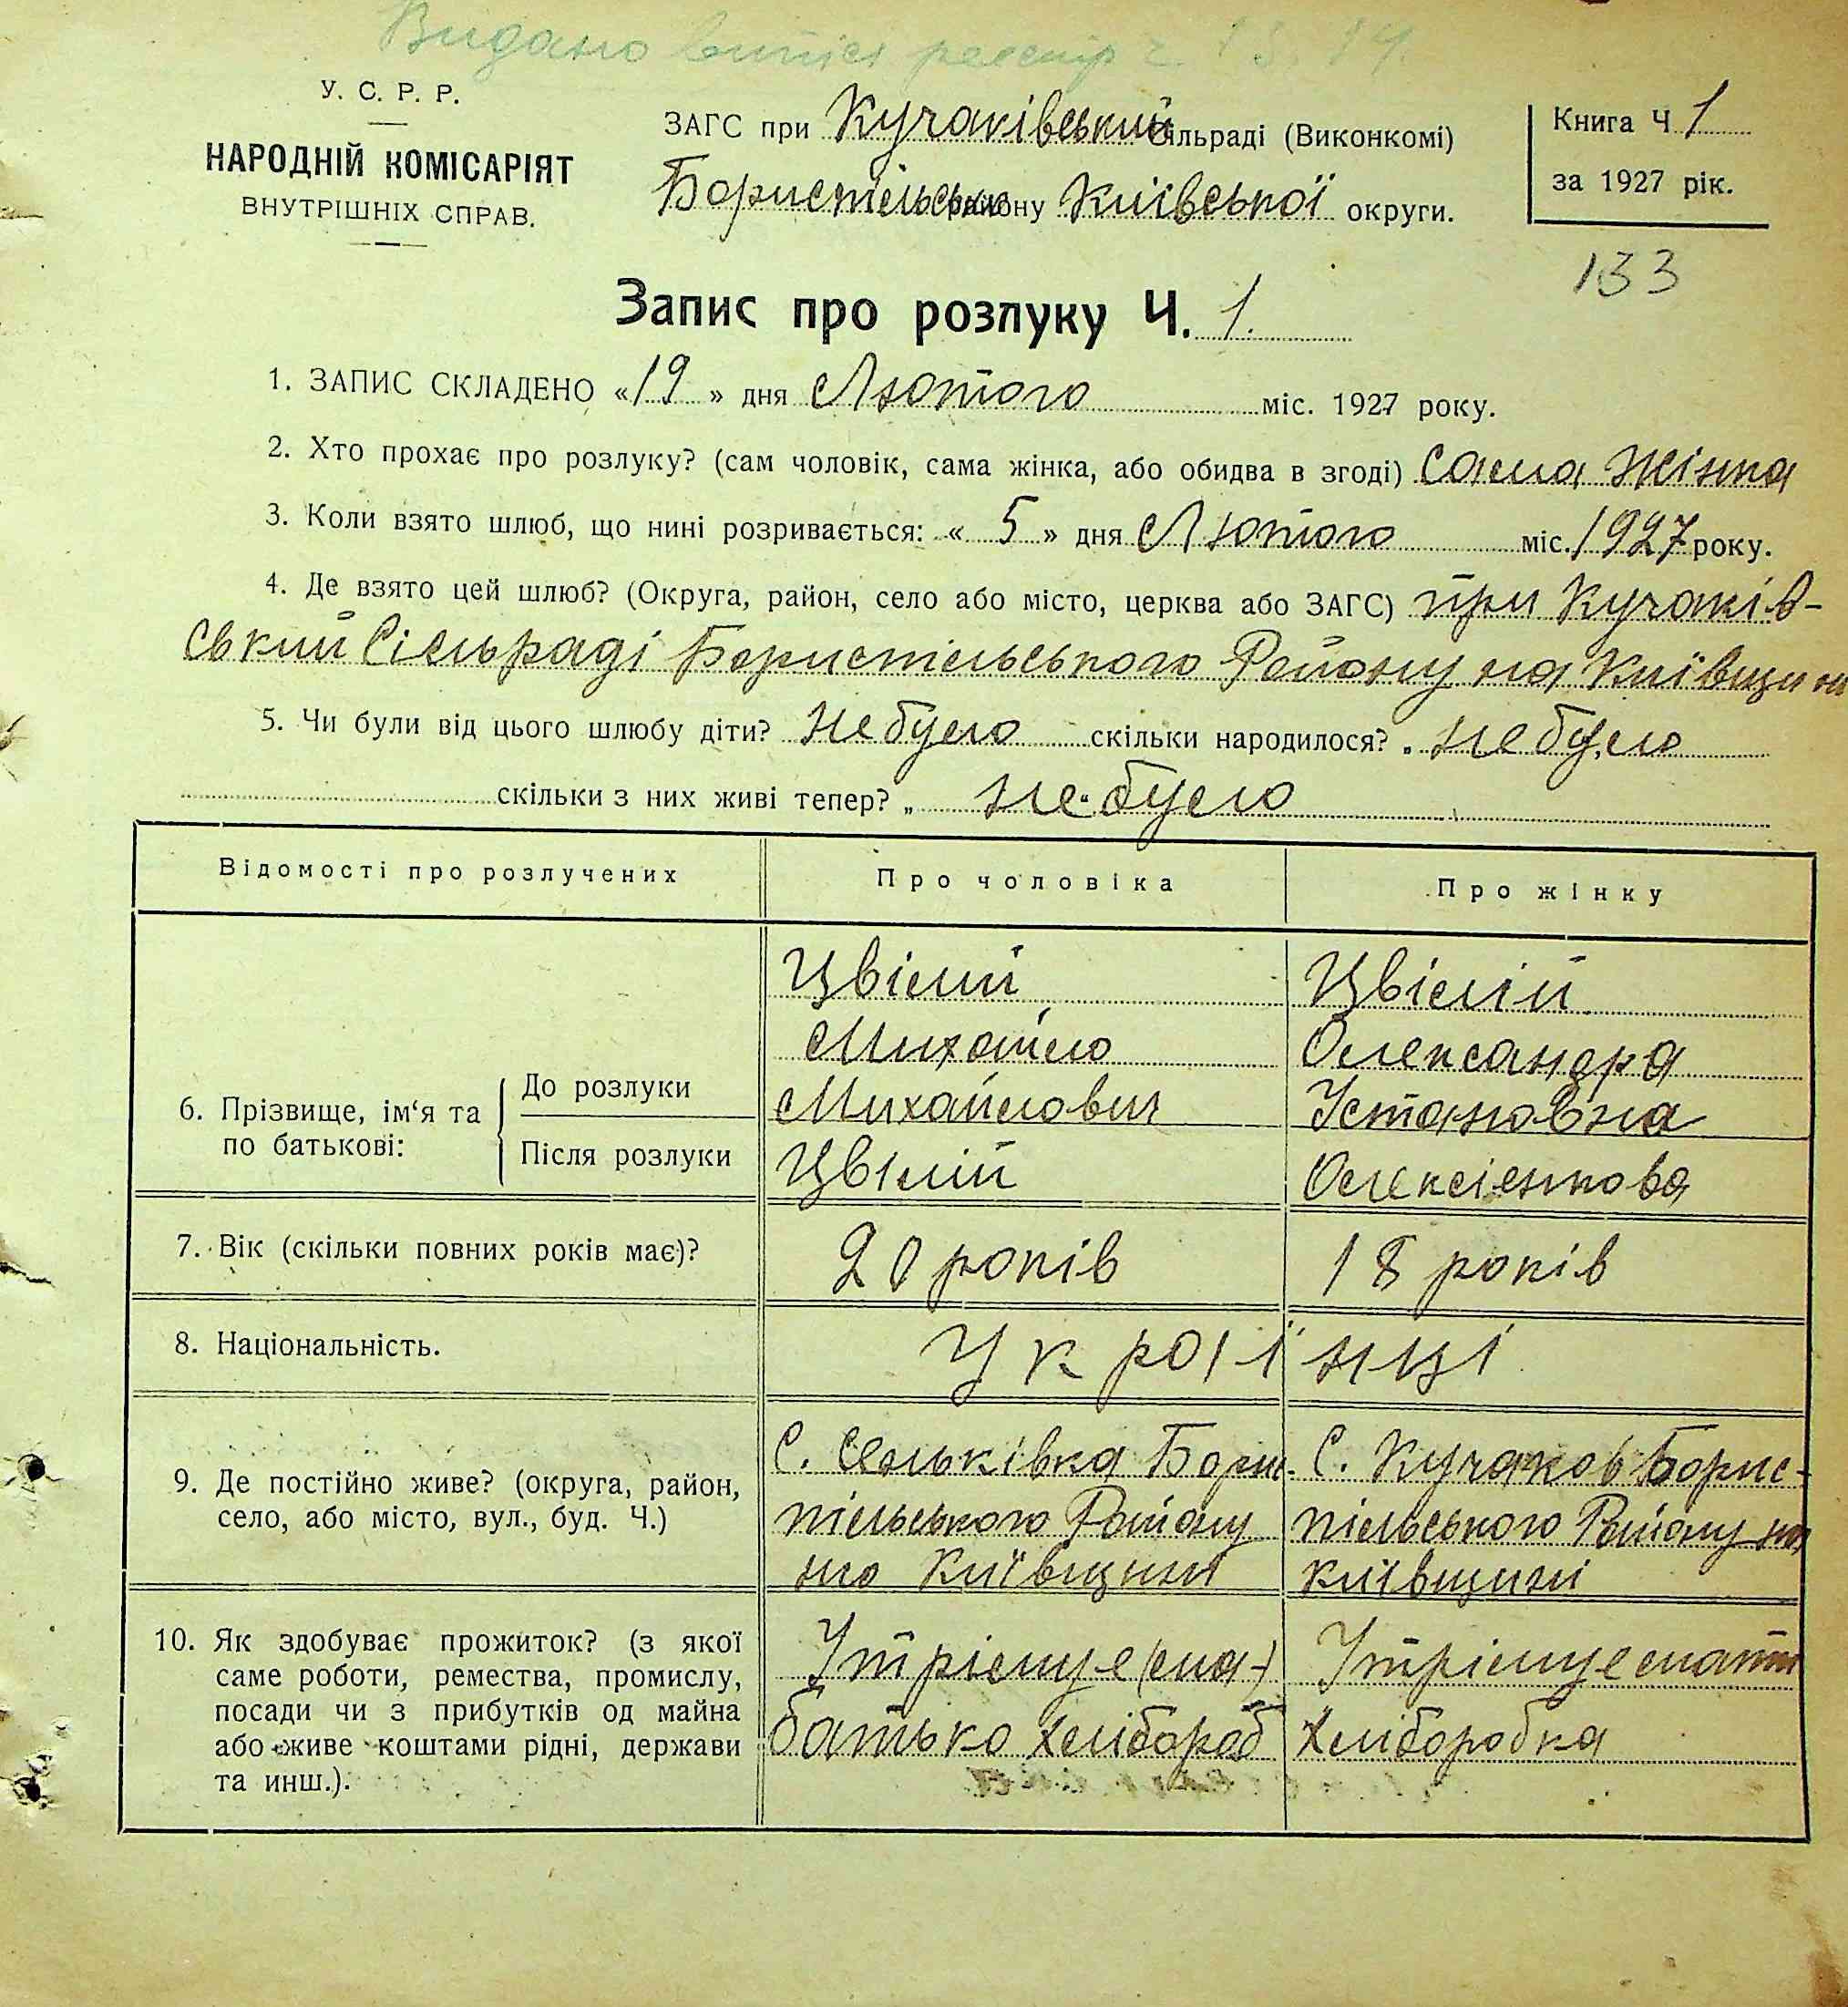 Видано витяг реєстр ч. 13. 14.
У. С. Р. Р.
НАРОДНІЙ КОМІСАРІЯТ
ВНУТРІШНІХ СПРАВ.
ЗАГС при Кучаківський сільраді (Виконкомі)
Бориспільського району Київської округи.
Книга Ч 1
за 1927 рік.
133
Запис про розлуку Ч. 1.
1. ЗАПИС СКЛАДЕНО «19» дня Лютого міс. 1927 року.
2. Хто прохає про розлуку? (сам чоловік, сама жінка, або обидва в згоді) Сама жінка
3. Коли взято шлюб, що нині розривається: «5» дня Лютого міс. 1927 року.
4. Де взято цей шлюб? (Округа, район, село або місто, церква або ЗАГС) при Кучаків-
ський Сільраді Бориспільського Району на Київщини
5. Чи були від цього шлюбу діти? не було скільки народилося? не було
скільки з них живі тепер? „ не було
Відомості про розлучених Про чоловіка Про жінку
6. Прізвище, ім‘я та по батькові:
До розлуки
Після розлуки
Цвілий
Михайло
Михайлович
Цвілий
Цвілій
Олександра
Установна
Олексієнкова
7. Вік (скільки повних років має)? 20 років 18 років
8. Національність. Українці
9. Де постійно живе? (округа, район,
село, або місто, вул., буд. Ч.)
С. Сеньківка Бори-
пільського Району
на Київщині
С. Кучаков Борис-
пільського Району на
Київщині
10. Як здобуває прожиток? (з якої
саме роботи, ремества, промислу,
посади чи з прибутків од майна
або живе коштами рідні, держави
та инш.).
Утрімує (ма-)
батько хлібороб
Утрімує мати
Хліборобка